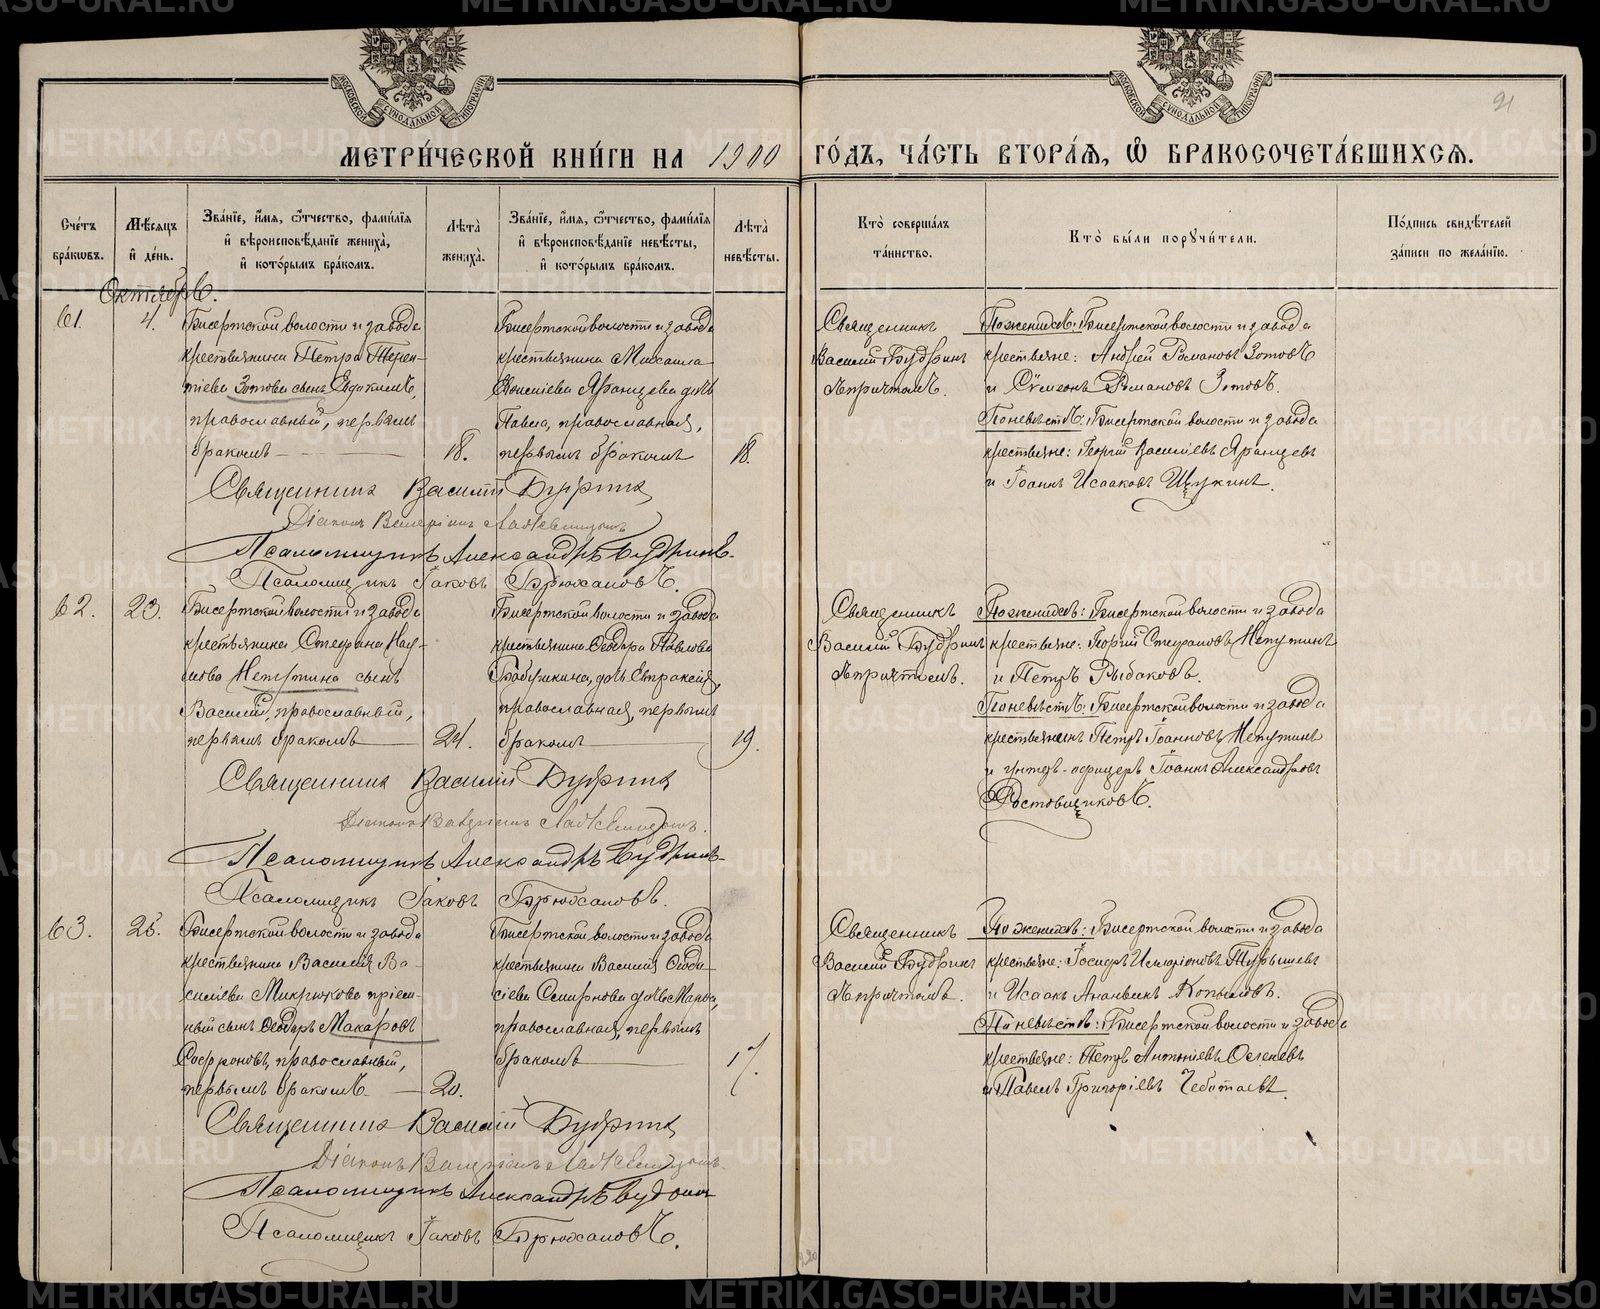 МЕТРИ́ЧЕСКОЙ КНИ́ГИ НА 1900 ГО́ДЪ, ЧА́СТЬ ВТОРА́Я, Ѡ БРАКОСОЧЕТА́ВШИХСЯ.
91
Сче́тъ бра́ковъ.
Мѣ́сяцъ и де́нь.
Зва́нїе, и́мя, ѻ́тчество, фами́лїя и вѣроисповѣ́данїе жениха̀, и кото́рымъ бра́комъ.
Лѣта̀ жениха̀.
Зва́нїе, и́мя, ѻ́тчество, фами́лїя и вѣроисповѣ́данїе невѣ́сты, и кото́рымъ бра́комъ.
Лѣта̀ невѣ́сты.
Кто̀ соверша́лъ та́инство.
Кто̀ бы́ли порꙋчи́тели.
По́дпись свидѣ́телей за́писи по жела́нїю.
Октябрь.
61.
4.
Бисертской волости и завода
крестьянина Петра Терен-
тіева Зотова сынъ Евдокимъ,
православный, первымъ
бракомъ
18.
Бисертской волости и завода
крестьянина Михаила
Яранцева дочь
Павла, православная,
первымъ бракомъ
18.
Священникъ
Василій Будринъ
съ причтомъ.
По женихѣ: Бисертской волости и завода
крестьяне: Андрей Романовъ Зотовъ
и Сѵмеонъ Романовъ Зотовъ.
По невѣстѣ: Бисертской волости и завода
крестьяне: Георгій Василіевъ Яранцевъ
и Іоаннъ Исааковъ Щукинъ.
Священникъ Василій Будринъ
Діаконъ Валеріанъ
Псаломщикъ Александръ Будринъ
Псаломщикъ Іаковъ Брюхановъ.
62.
23.
Бисертской волости и завода
крестьянина Стефана Нау-
мова Мепутина сынъ
Василій, православный,
первымъ бракомъ
24.
Бисертской волости и завода
крестьянина Ѳеодора Павлова
Бабушкина, дочь Евпраксія,
православная, первымъ
бракомъ
19.
Священникъ
Василій Будринъ
съ причтомъ.
По женихѣ: Бисертской волости и завода
крестьяне: Георгій Стефановъ Мепутинъ
и Петръ Рыбаковъ.
По невѣстѣ: Бисертской волости и завода
крестьянинъ Петръ Іоанновъ Мепутинъ
и унтеръ-офицеръ Іоаннъ Александровъ
Ростовщиковъ.
Священникъ Василій Будринъ
Діаконъ Валеріанъ
Псаломщикъ Александръ Будринъ
Псаломщикъ Іаковъ Брюхановъ.
63.
Бисертской волости и завода
крестьянина Василія Ва-
силіева Микрюкова пріем-
ный сынъ Ѳеодоръ Макаровъ
Софроновъ, православный,
первымъ бракомъ
20.
Бисертской волости и завода
крестьянина Василія Ѳеодо-
сіева Смирнова дочь Марѳа,
православная, первымъ
бракомъ
17.
Священникъ
Василій Будринъ
съ причтомъ.
По женихѣ: Бисертской волости и завода
крестьяне: Іосифъ Иларіоновъ Турышевъ
и Исаакъ Ананьинъ Копыловъ.
По невѣстѣ: Бисертской волости и завода
крестьяне: Петръ Антоніевъ
и Павелъ Григоріевъ Чебатаевъ.
Священникъ Василій Будринъ
Діаконъ Валеріанъ
Псаломщикъ Александръ Будринъ
Псаломщикъ Іаковъ Брюхановъ.
METRIKI.GASO-URAL.RU